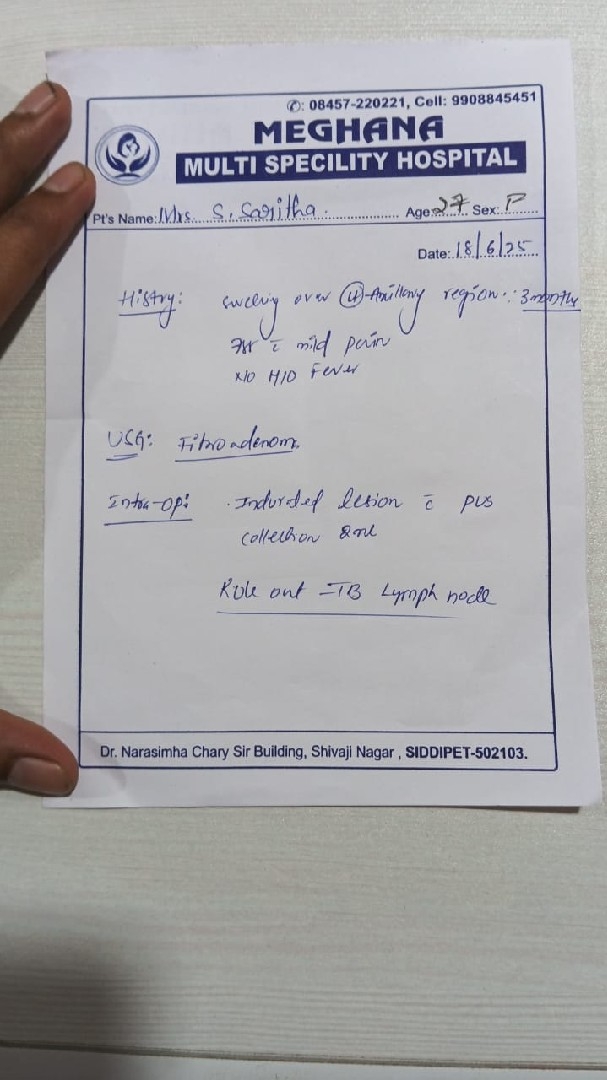 ✆: 08457-220221, Cell: 9908845451
MEGHANA
MULTI SPECILITY HOSPITAL
Pt's Name: Mrs S. Saritha. Age: 27 Sex: F
Date: 18/6/25
Histry: swelling over Axillary region :: 3 months
c̄ mild pain
No H/O Fever
USG: Fibroadenoma
Intra-op: Indurated lesion c̄ pus
collection
Rule out - TB Lymph node
Dr. Narasimha Chary Sir Building, Shivaji Nagar, SIDDIPET-502103.